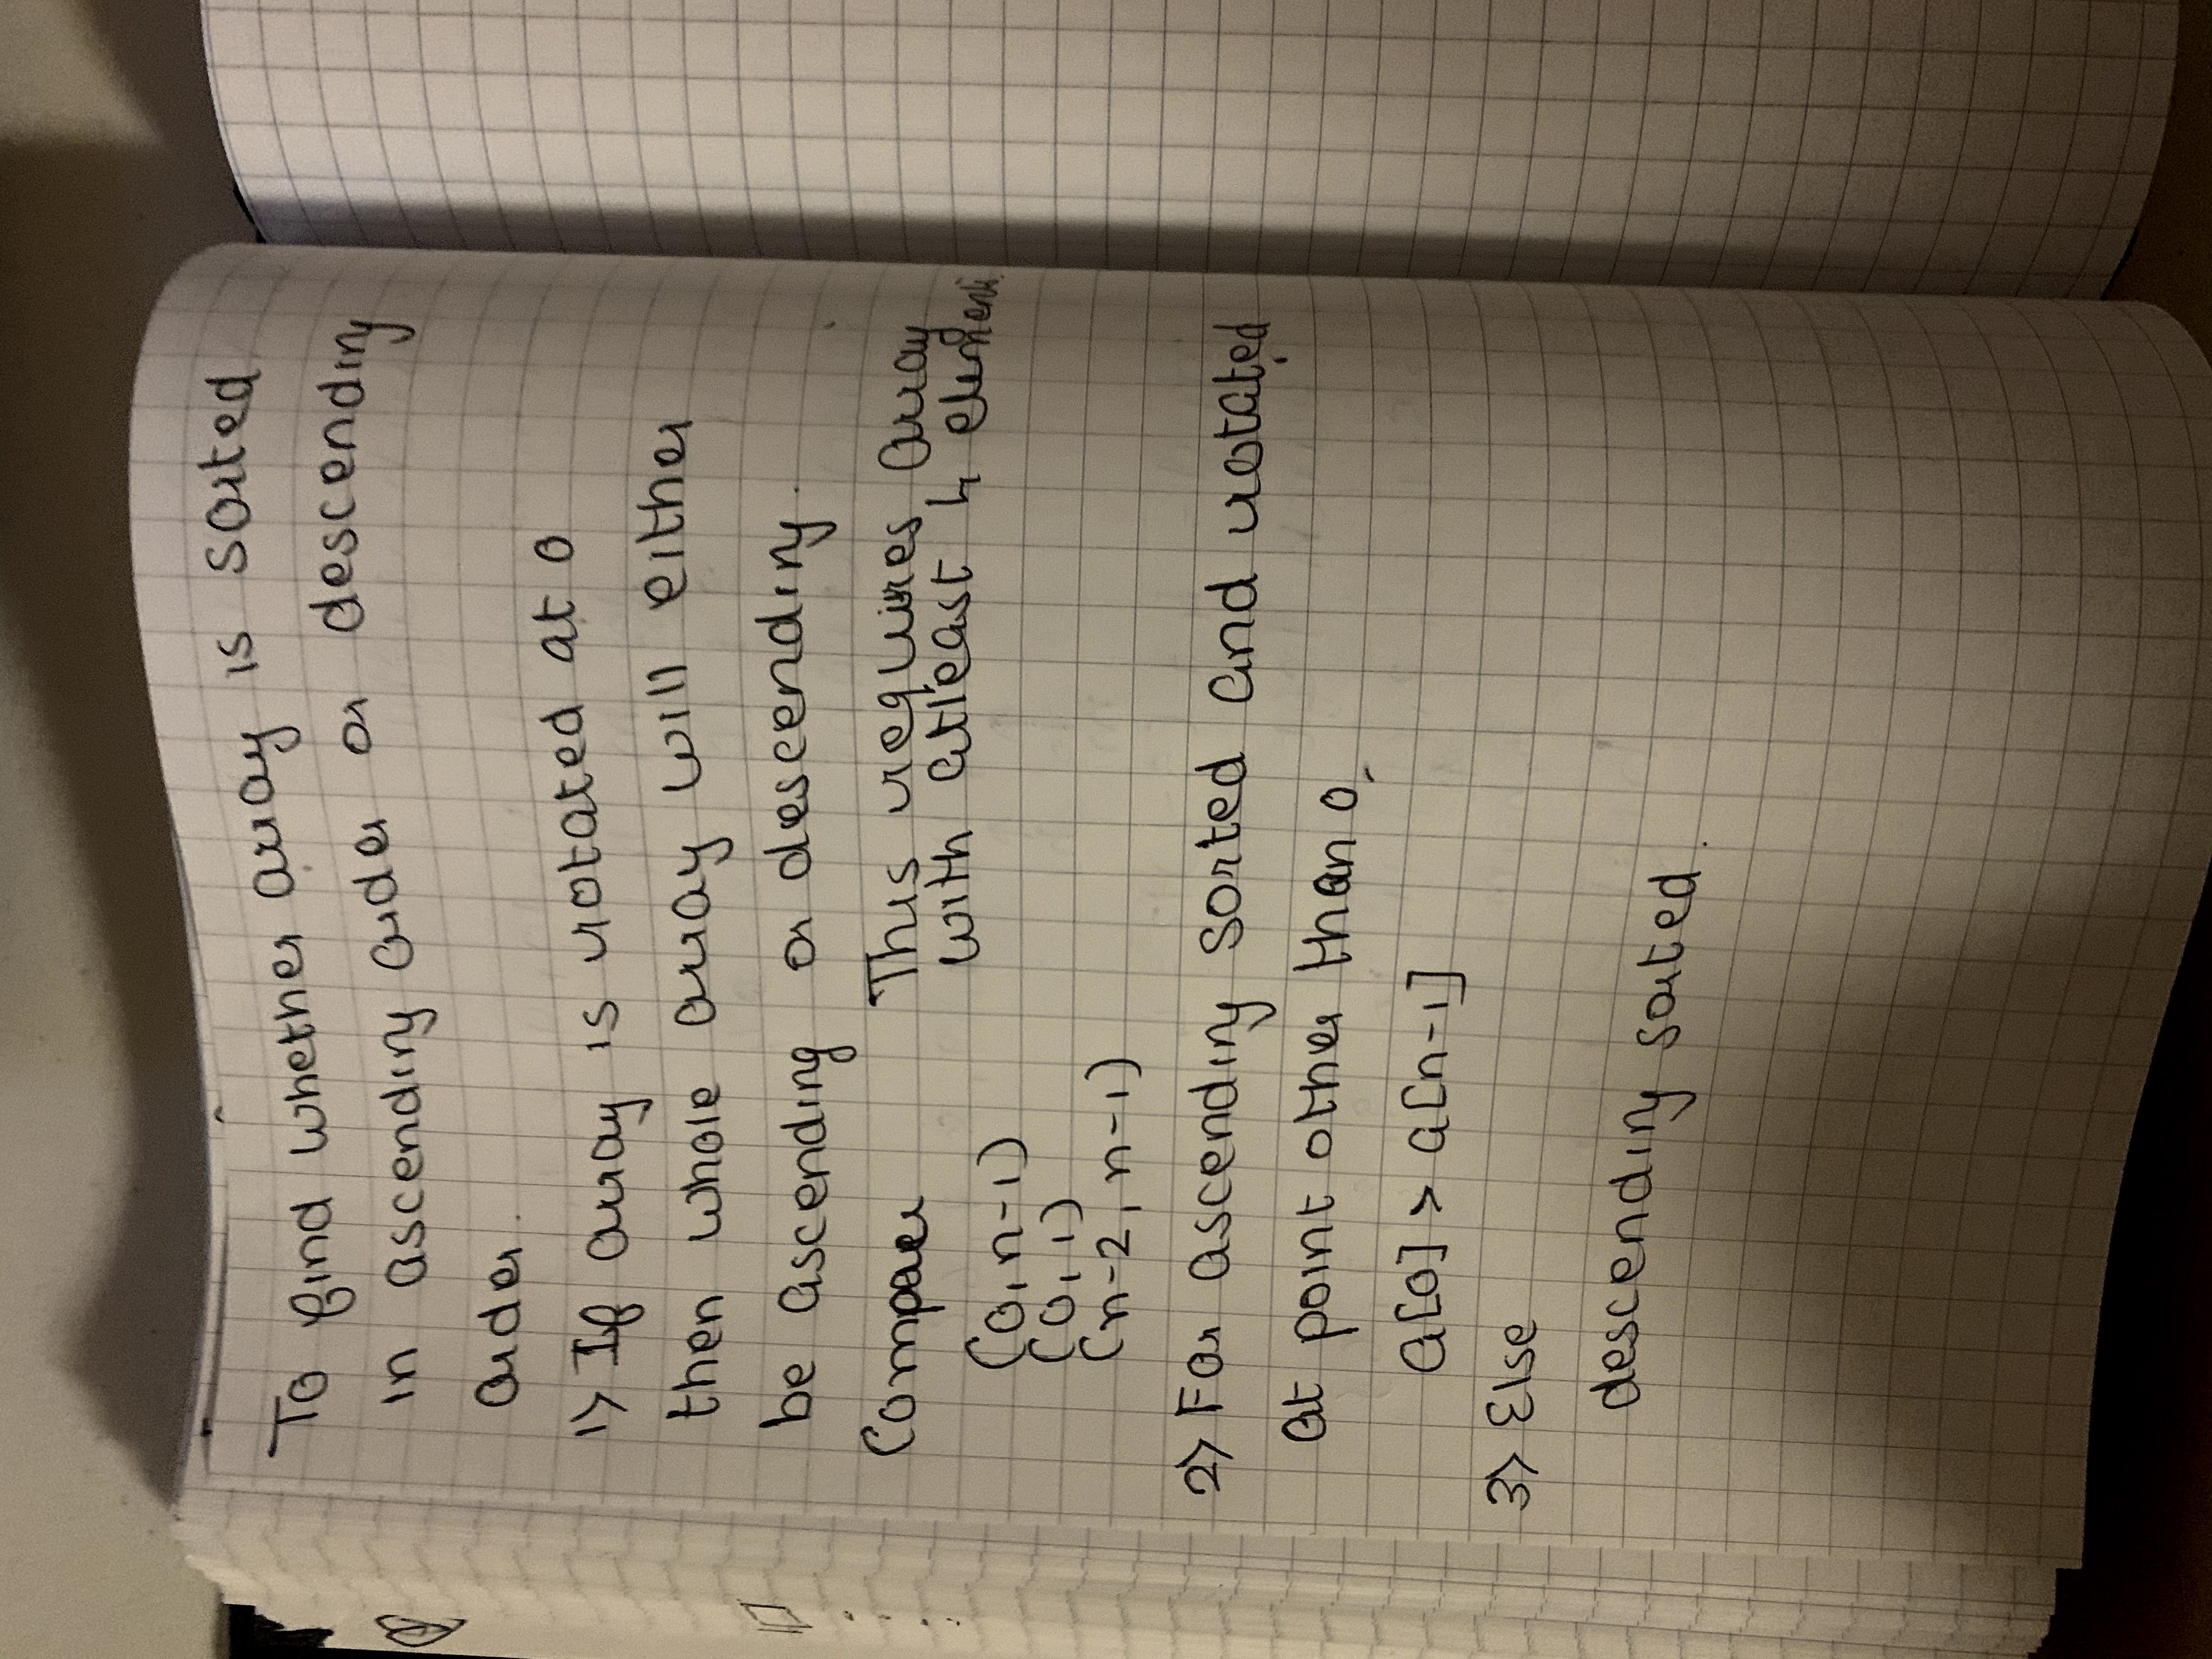 To find whether array is sorted
in ascending order or descending
order.
1) If array is rotated at 0
then whole array will either
be ascending or descending.
Compare This requires array
with atleast 4 elements.
(0, n-1)
(0, 1)
(n-2, n-1)
2) For ascending sorted and rotated
at point other than 0,
a[0] > a[n-1]
3) Else
descending sorted.